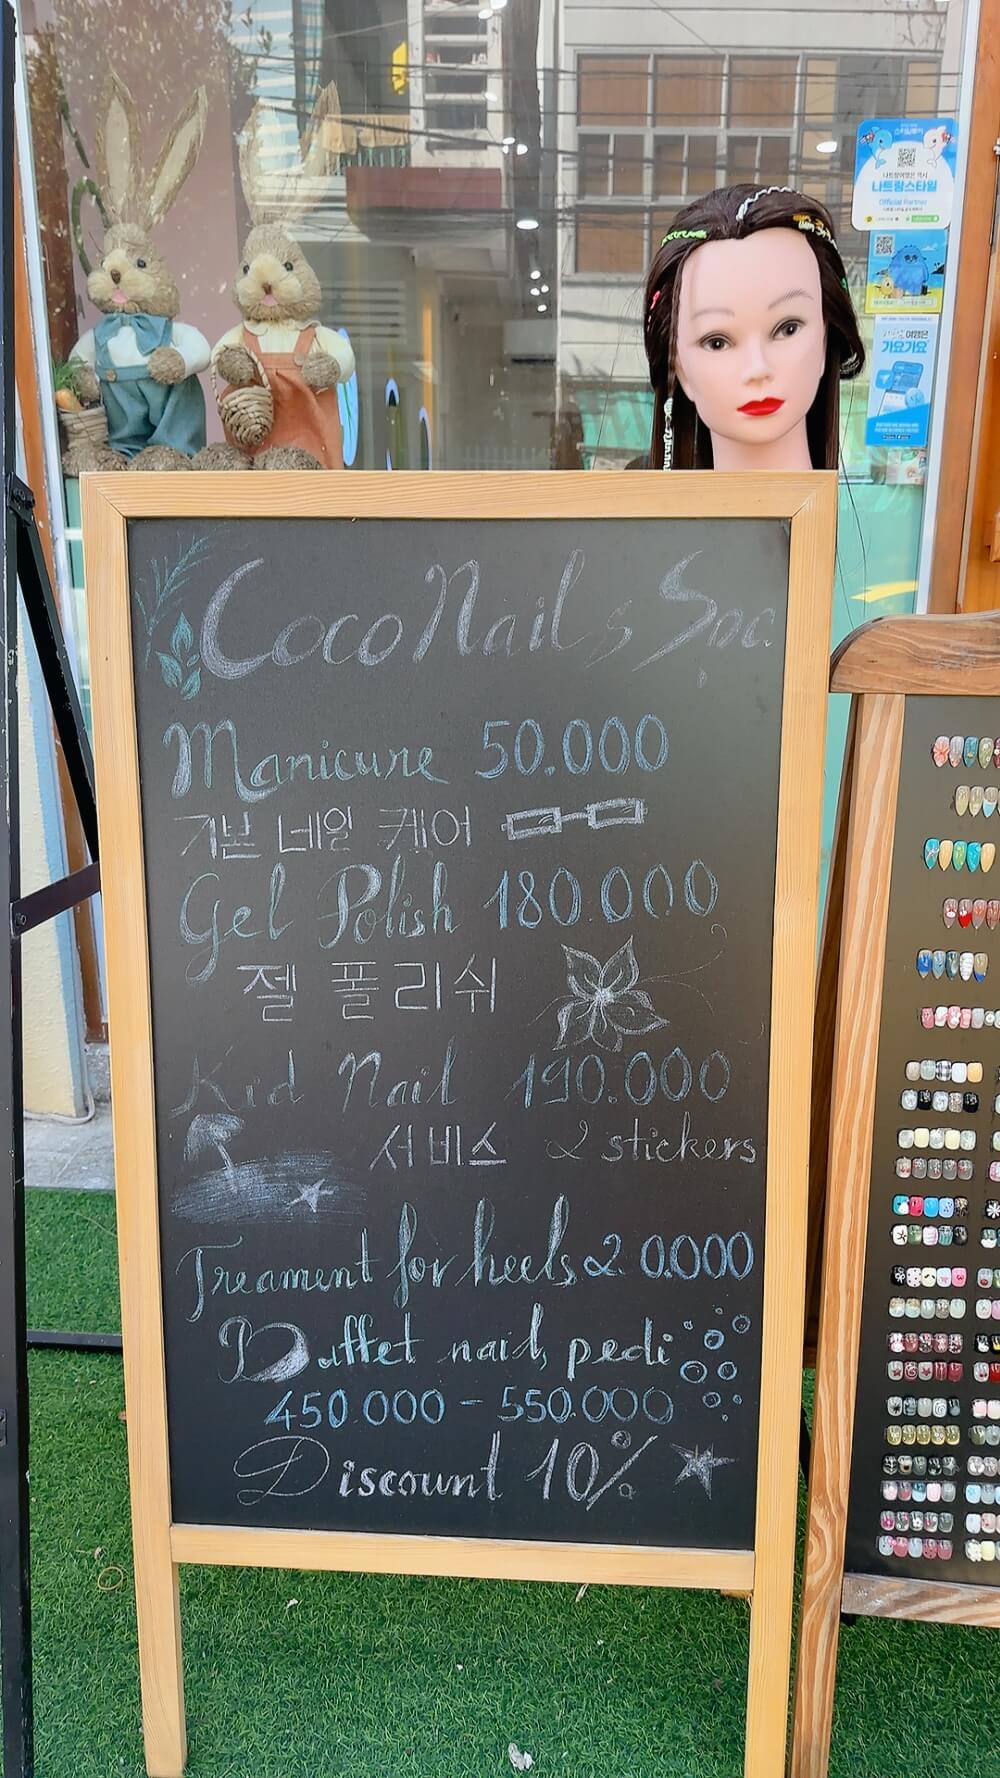 스타일투키
나트랑여행은 역시
나트랑스타일
Official Partner
여행은
가요가요
Coco Nails Spa
Manicure 50.000
기본 네일 케어
Gel Polish 180.000
젤 폴리쉬
Kid Nail 190.000
서비스 2 stickers
Treament for heels 20.0000
Buffet nail, pedi
450.000 - 550.000
Discount 10%